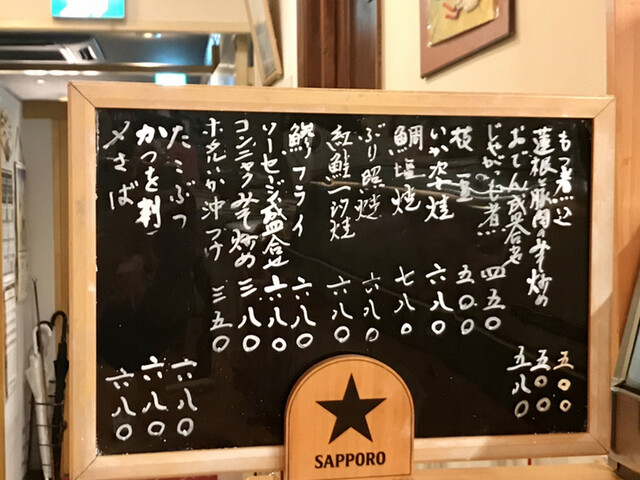 もつ煮込 五〇〇
蓮根と豚肉のみそ炒め 五〇〇
おでん盛合せ 五八〇
じゃがバタ煮 四五〇
枝豆 五〇〇
いか姿焼 六八〇
鯛塩焼 七八〇
ぶり照焼 六八〇
紅鮭一切焼 六八〇
鰺フライ 六八〇
ソーセージ盛合せ 六八〇
コンニャクみそ炒め 三八〇
ホタルいか沖つけ 三五〇
たこぶつ 六八〇
かつを刺 六八〇
〆さば 六八〇
SAPPORO